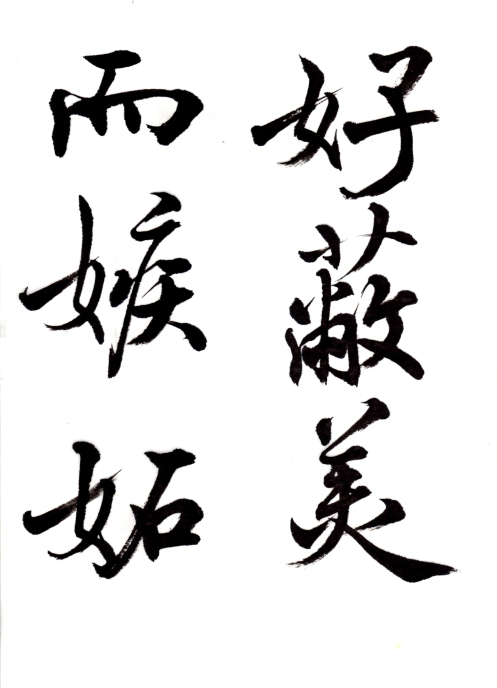 好蔽美
而嫉妬